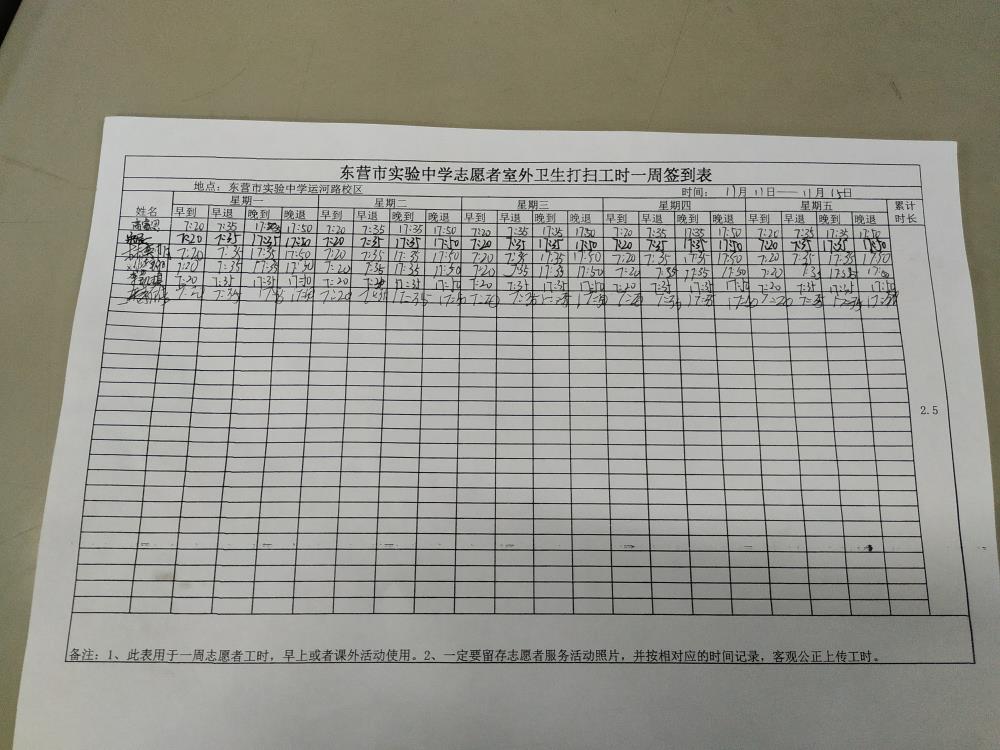 东营市实验中学志愿者室外卫生打扫工时一周签到表
地点：东营市实验中学运河路校区 时间：11月11日——11月15日
姓名 星期一 星期二 星期三 星期四 星期五 累计时长
早到 早退 晚到 晚退 早到 早退 晚到 晚退 早到 早退 晚到 晚退 早到 早退 晚到 晚退 早到 早退 晚到 晚退
7:20 7:35 17:50 7:20 7:35 17:35 17:50 7:20 7:35 17:35 17:50 7:20 7:35 17:35 17:50 7:20 7:35 17:35 17:50
7:20 7:35 17:35 17:50 7:20 7:35 17:35 17:50 7:20 7:35 17:35 17:50 7:20 7:35 17:35 17:50 7:20 7:35 17:35 17:50
7:20 7:35 17:35 17:50 7:20 7:35 17:35 17:50 7:20 7:35 17:35 17:50 7:20 7:35 17:35 17:50 7:20 7:35 17:35 17:50
7:20 7:35 17:35 7:20 7:35 17:35 17:50 7:20 7:35 17:35 17:50 7:20 7:35 17:35 17:50 7:20
7:20 7:35 17:35 7:20 17:35 17:50 7:20 7:35 17:35 17:50 7:20 7:35 17:35 17:50 7:20 7:35 17:50
7:35 7:20 17:35 7:20 7:35 7:20 7:35 17:35 7:35
2.5
备注：1、此表用于一周志愿者工时，早上或者课外活动使用。2、一定要留存志愿者服务活动照片，并按相对应的时间记录，客观公正上传工时。